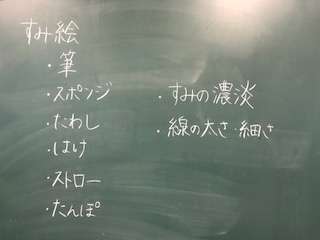 すみ絵
・筆
・スポンジ
・たわし
・はけ
・ストロー
・たんぽ
・すみの濃淡
・線の太さ・細さ